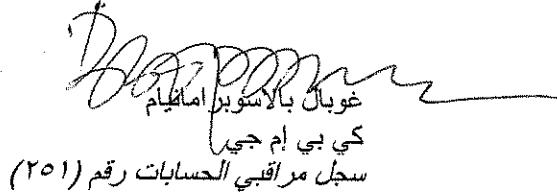 غوبال بالاسوبرامانيام
كي بي إم جي
سجل مراقبي الحسابات رقم (٢٥١)